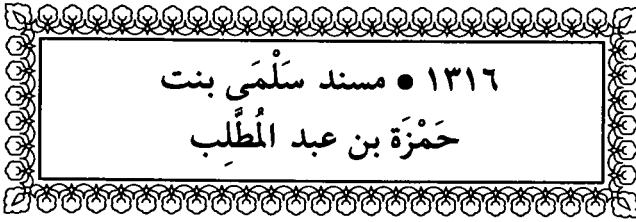 ١٣١٦ • مسند سَلْمَى بنت
حَمْزَة بن عبد المُطَّلِب